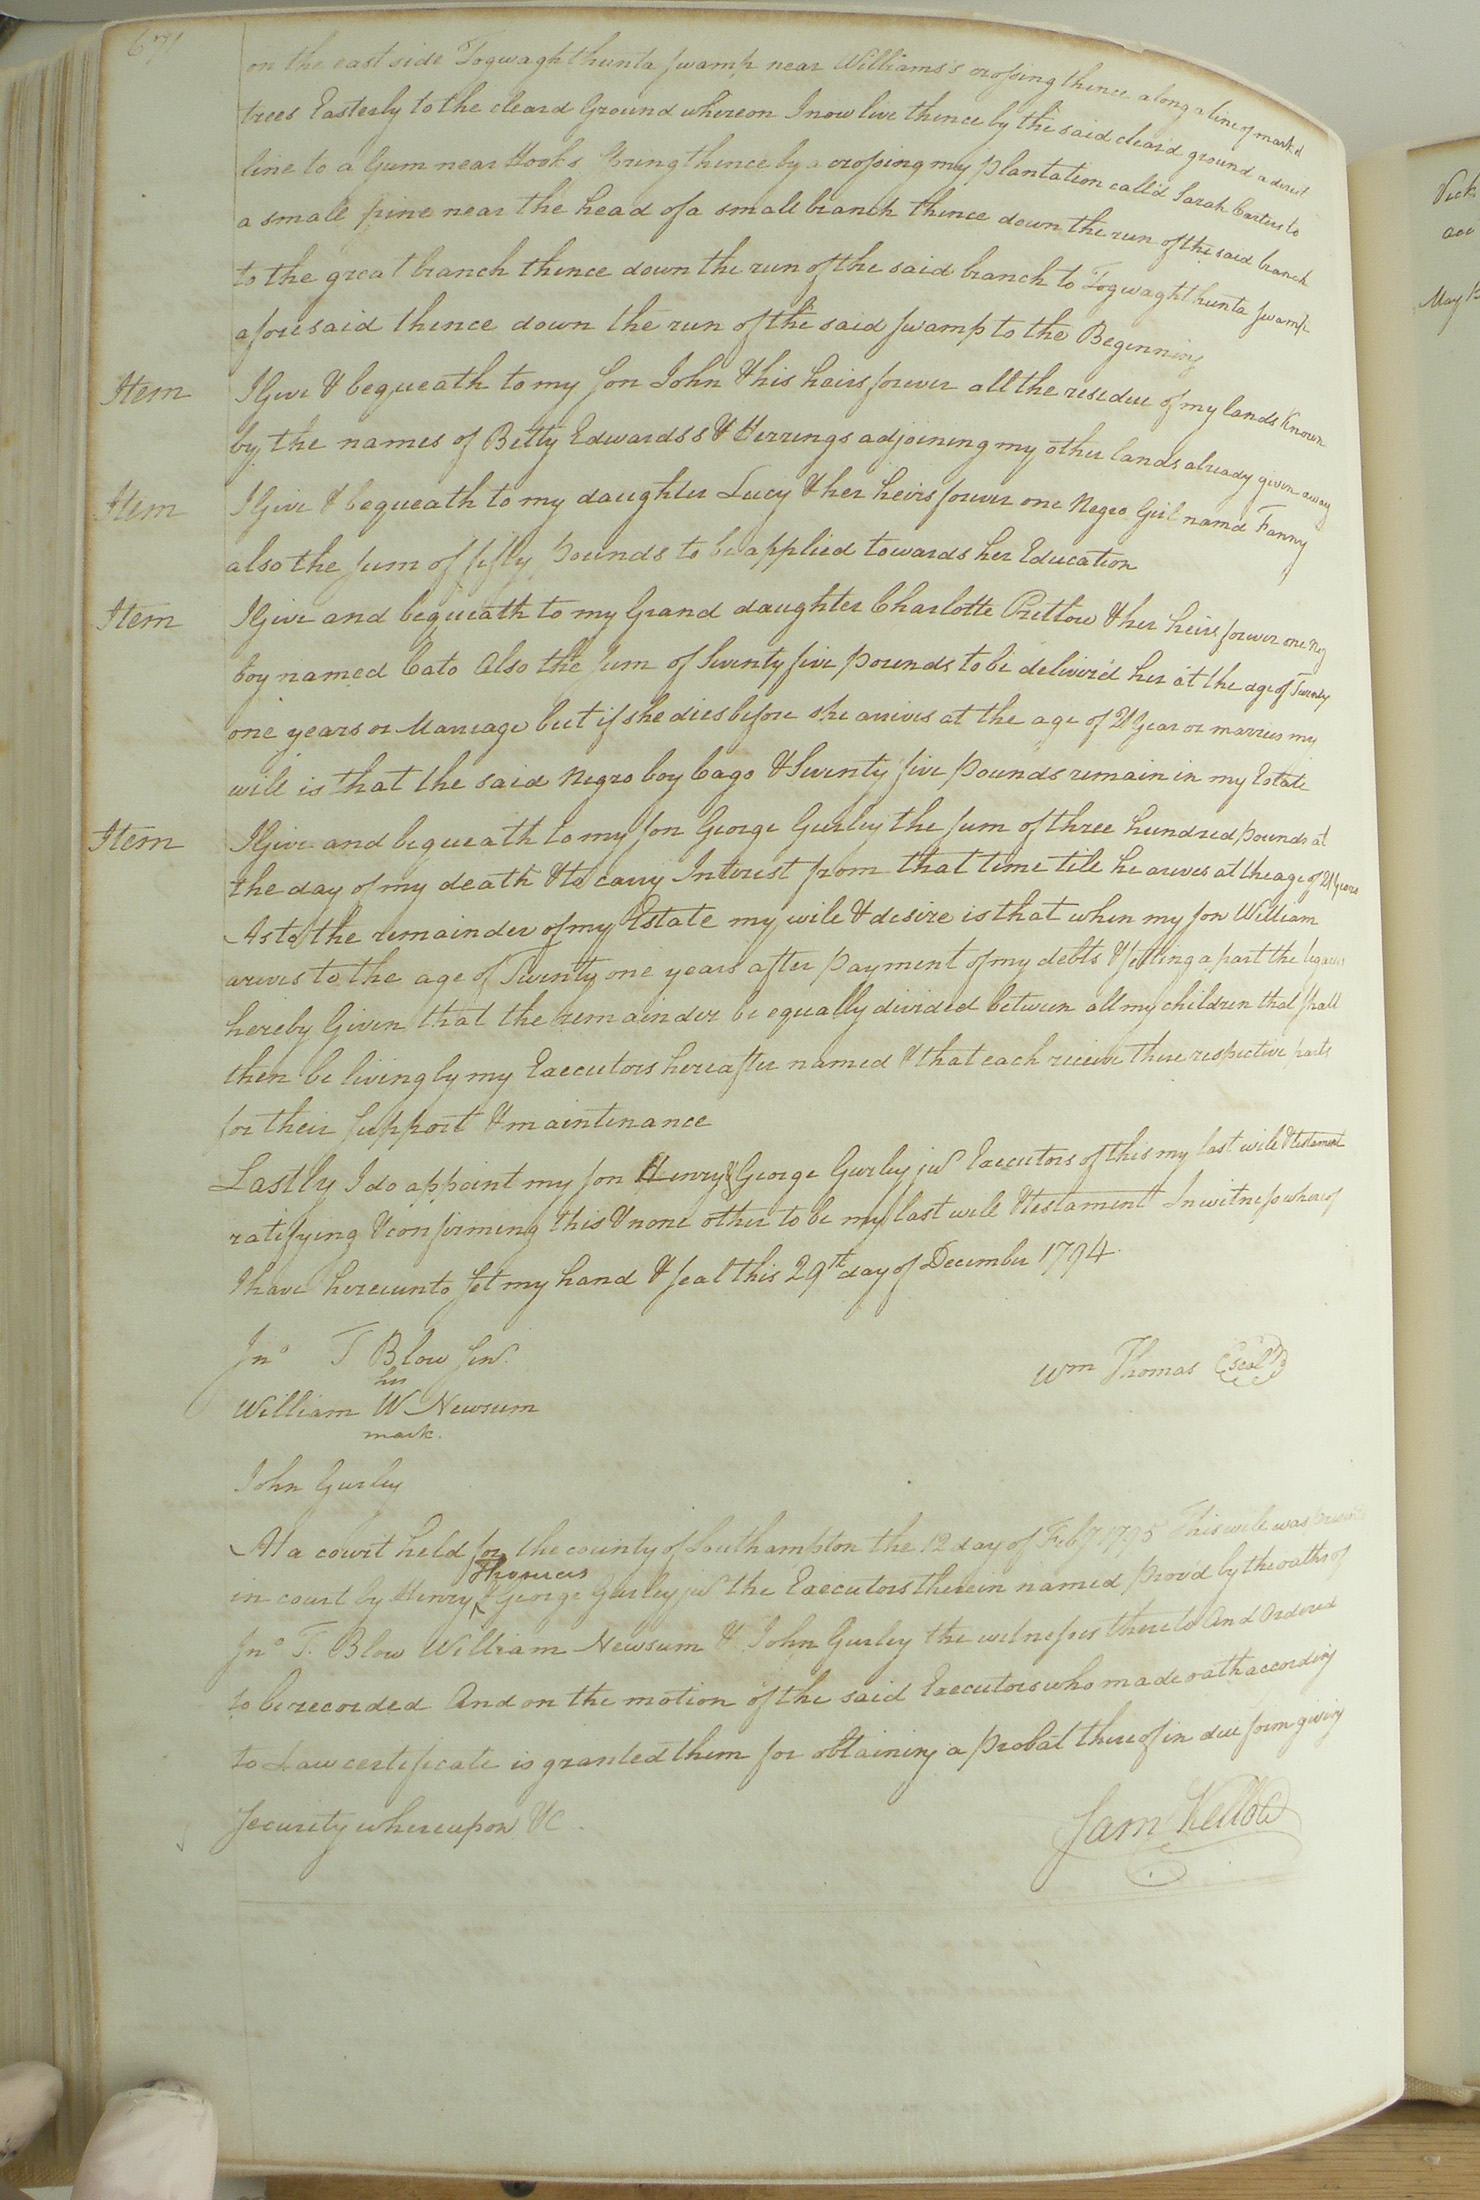 671
on the east side Togwaghthunta swamp near Williams's crossing thence along a line of markd
trees Easterly to the cleard Ground whereon I now live thence by the said cleard ground a direct
line to a Gum near Hooks Spring thence by a crossing my plantation calld Sarah Carters to
a small pine near the head of a small branch thence down the run of the said branch
to the great branch thence down the run of the said branch to Togwaghthunta swamp
aforesaid thence down the run of the said swamp to the Beginning
Item I Give & bequeath to my son John & his heirs forever all the residue of my lands Known
by the names of Betty Edwards's & Herrings adjoining my other lands already given away
Item I Give & bequeath to my daughter Lucy & her heirs forever one Negro Girl namd Fanny
also the sum of fifty pounds to be applied towards her Education
Item I Give and bequeath to my Grand daughter Charlotte Pretlow & her heirs forever one Neg
boy named Cato Also the sum of Seventy five pounds to be deliverd her at the age of Twenty
one years or Marriage but if she dies before she arrives at the age of 21 Year or marries my
will is that the said Negro boy Cago & Seventy five pounds remain in my Estate
Item I Give and bequeath to my son George Gurley the sum of three hundred pounds at
the day of my death & to carry Interest from that time till he arives at the age of 21 years
As to the remainder of my Estate my will & desire is that when my son William
arives to the age of Twenty one years after payment of my debts & setting apart the legacies
hereby Given that the remainder be equally divided between all my children that shall
then be living by my Executors hereafter named & that each receive there respective parts
for their support & maintenance
Lastly I do appoint my son Henry & George Gurley jur Executors of this my last will & testament
ratifying & confirming this & none other to be my last will & testament In witness whereof
I have hereunto set my hand & seal this 29th day of December 1794
Jno T Blow senr. Wm Thomas (seal)
his
William W Newsum
mark.
John Gurley
At a court held for the county of Southampton the 12 day of Feby 1795 This will was presented
in court by Henry Thomas & George Gurley jur the Executors therein named provd by the oaths of
Jno T. Blow William Newsum & John Gurley the witnesses thereto And Ordered
to be recorded And on the motion of the said Executors who made oath according
to Law certificate is granted them for obtaining a probat thereof in due form giving
security whereupon &c.
Sam Kello
May